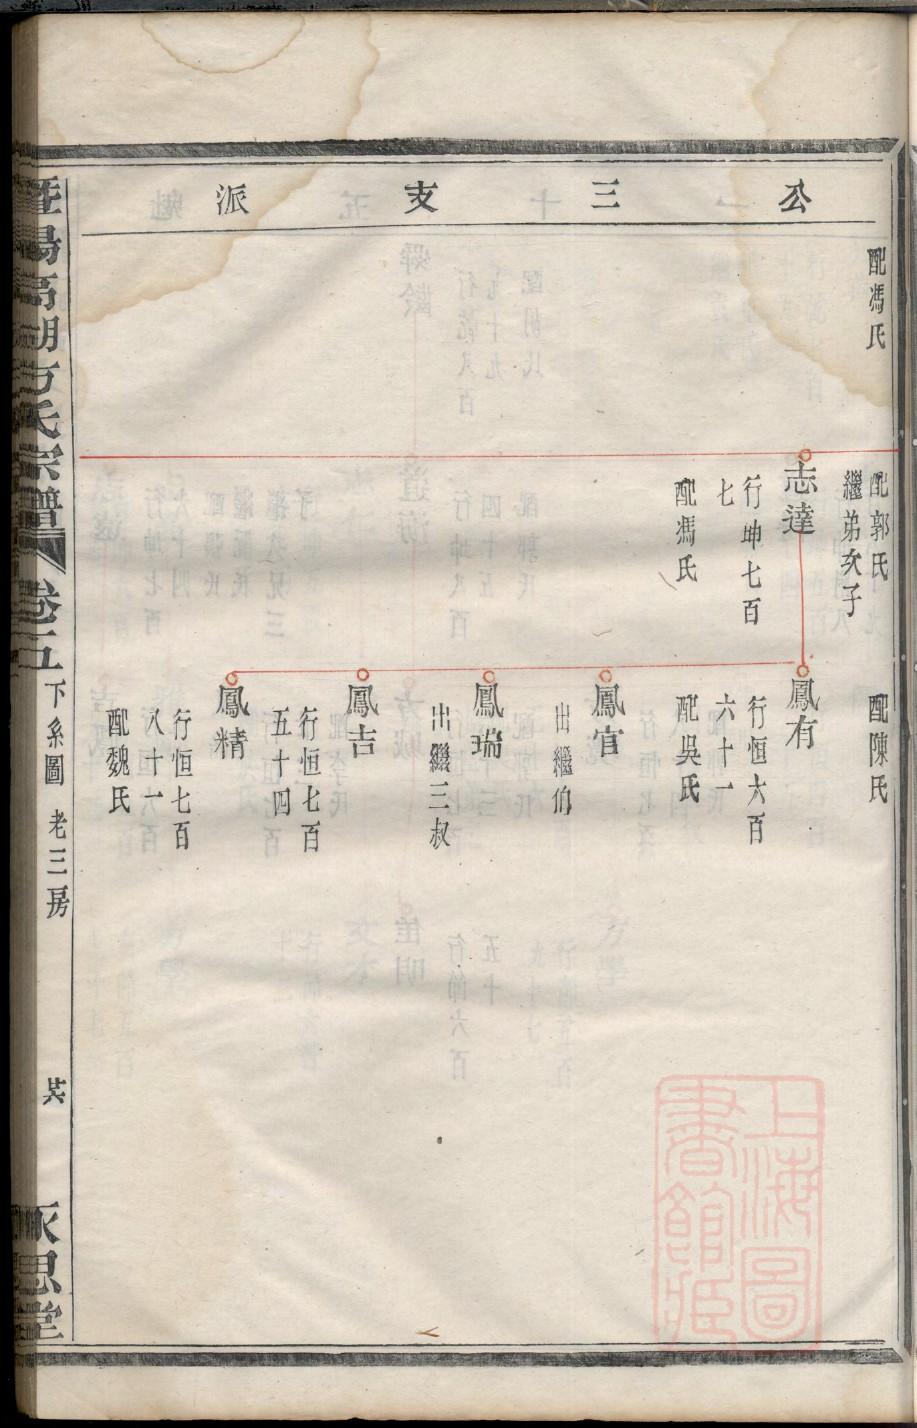 公三支派
配馮氏
配郭氏
繼弟次子
志達
行坤七百
七
配馮氏
配陳氏
鳳有
行恒六百
六十一
配吳氏
鳳官
出繼伯
鳳瑞
出繼三叔
鳳吉
行恒七百
五十四
鳳精
行恒七百
八十一
配魏氏
暨陽高湖方氏宗譜
卷二五
下系圖 老三房
永思堂
上海圖書館藏